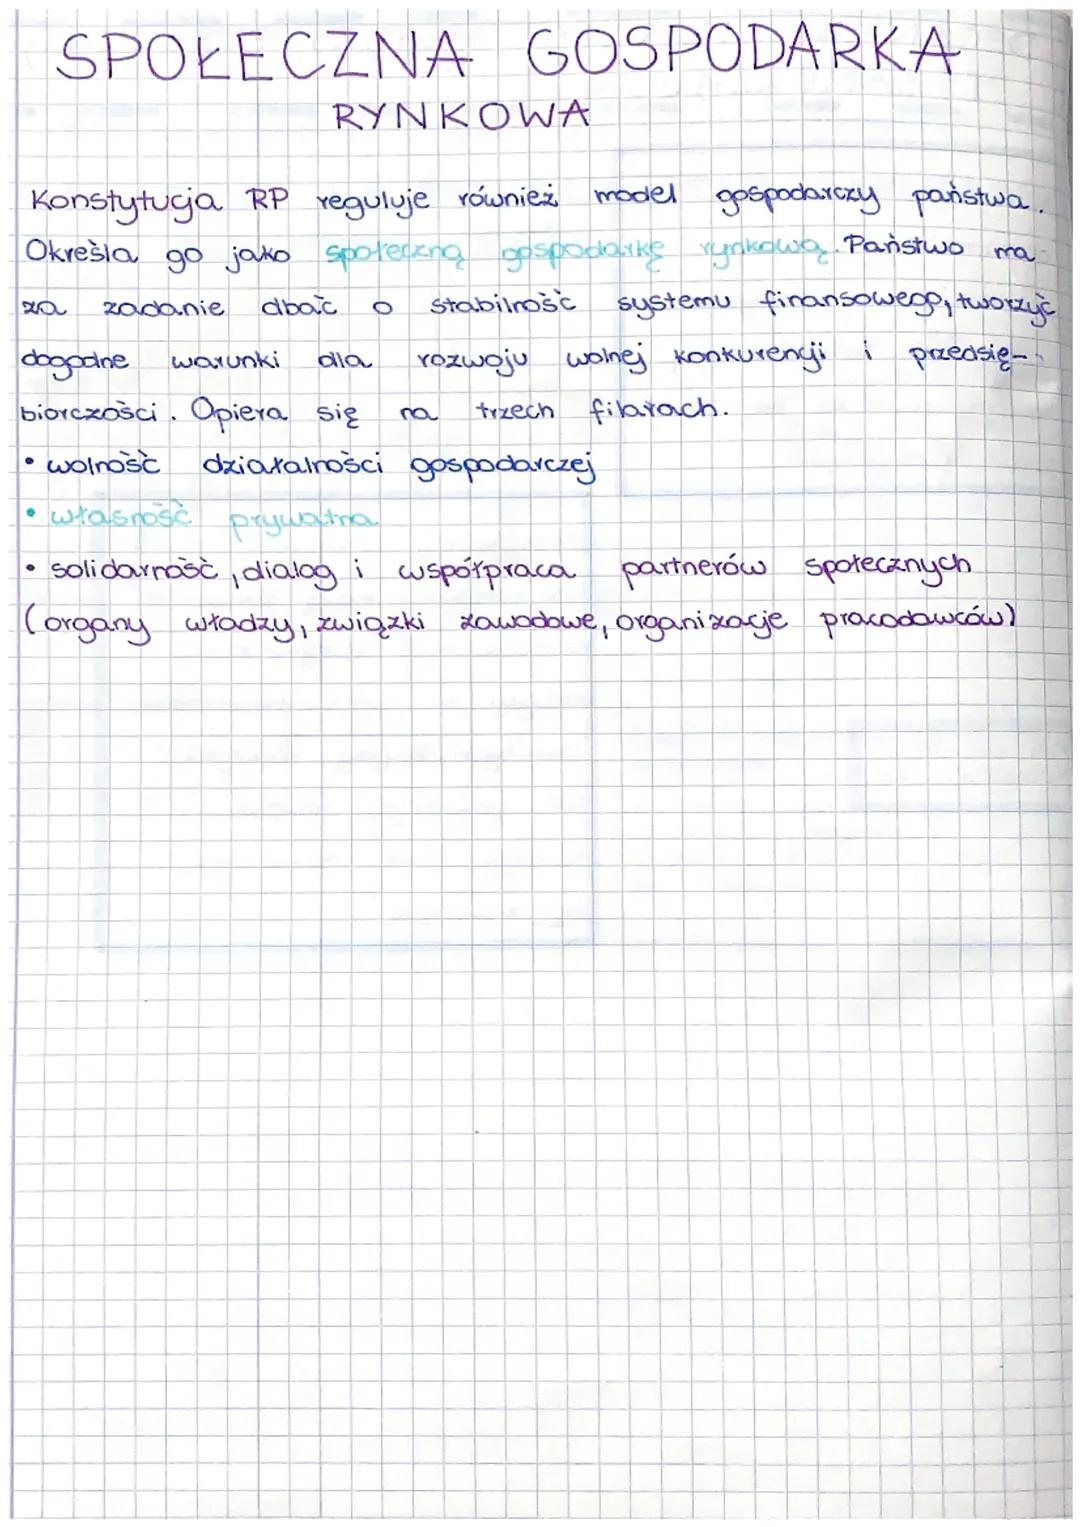 SPOŁECZNA GOSPODARKA
RYNKOWA
Konstytucja RP reguluje również model gospodarczy państwa.
Określa go jako społeczną gospodarkę rynkową. Państwo ma
za zadanie dbać o stabilność systemu finansowego, tworzyć
dogodne warunki dla rozwoju wolnej konkurencji i przedsię-
biorczości. Opiera się na trzech filarach.
• wolność działalności gospodarczej
• własność prywatna
• solidarność, dialog i współpraca partnerów społecznych
(organy władzy, związki zawodowe, organizacje pracodawców)